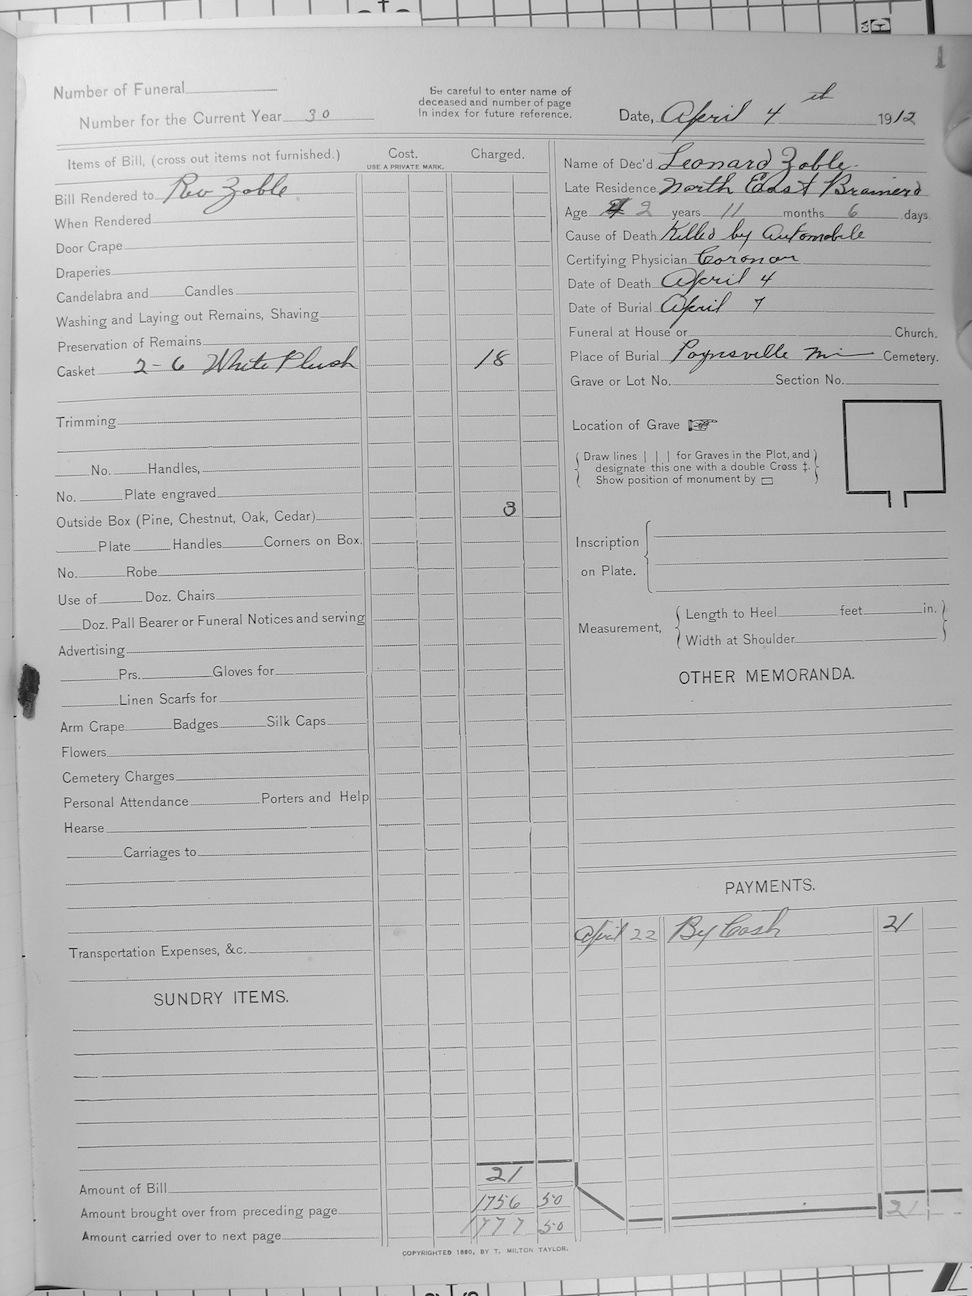 1
Number of Funeral
Number for the Current Year 30
Be careful to enter name of
deceased and number of page
in index for future reference.
Date, April 4th 1912
Items of Bill, (cross out items not furnished.)
Cost.
USE A PRIVATE MARK.
Charged.
Bill Rendered to Rev Zoble
When Rendered
Door Crape
Draperies
Candelabra and Candles
Washing and Laying out Remains, Shaving
Preservation of Remains
Casket 2-6 White Plush 18
Trimming
No. Handles,
No. Plate engraved
Outside Box (Pine, Chestnut, Oak, Cedar) 3
Plate Handles Corners on Box.
No. Robe
Use of Doz. Chairs
Doz. Pall Bearer or Funeral Notices and serving
Advertising
Prs. Gloves for
Linen Scarfs for
Arm Crape Badges Silk Caps
Flowers
Cemetery Charges
Personal Attendance Porters and Help
Hearse
Carriages to
Transportation Expenses, &c.
SUNDRY ITEMS.
Amount of Bill 21
Amount brought over from preceding page 1756 50
Amount carried over to next page 1777 50
Name of Dec'd Leonard Zoble
Late Residence North East Brainerd
Age 2 years 11 months 6 days
Cause of Death Killed by Automobile
Certifying Physician Coronor
Date of Death April 4
Date of Burial April 7
Funeral at House or Church.
Place of Burial Paynsville Min Cemetery.
Grave or Lot No. Section No.
Location of Grave
Draw lines | | | for Graves in the Plot, and
designate this one with a double Cross ‡.
Show position of monument by
Inscription
on Plate.
Measurement,
Length to Heel feet in.
Width at Shoulder
OTHER MEMORANDA.
PAYMENTS.
April 22 By Cash 21
21
COPYRIGHTED 1880, BY T. MILTON TAYLOR.